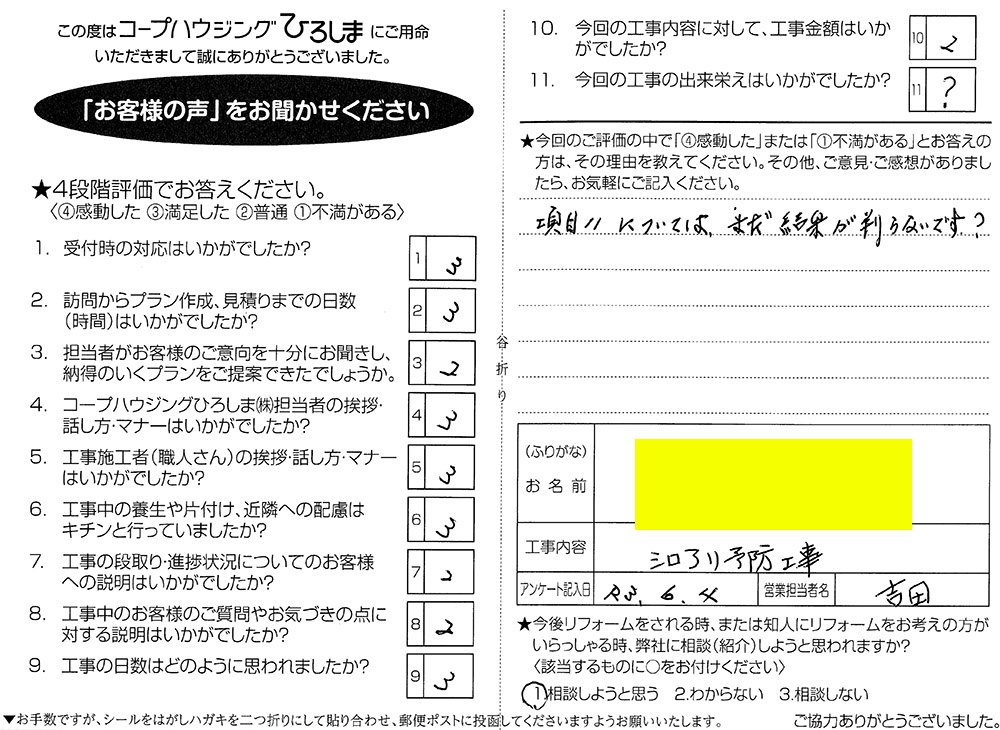 この度はコープハウジングひろしまにご用命
いただきまして誠にありがとうございました。
「お客様の声」をお聞かせください
★4段階評価でお答えください。
〈④感動した ③満足した ②普通 ①不満がある〉
1. 受付時の対応はいかがでしたか?
1 3
2. 訪問からプラン作成、見積りまでの日数
(時間)はいかがでしたか?
2 3
3. 担当者がお客様のご意向を十分にお聞きし、
納得のいくプランをご提案できたでしょうか。
3 2
4. コープハウジングひろしま㈱担当者の挨拶・
話し方・マナーはいかがでしたか?
4 3
5. 工事施工者(職人さん)の挨拶・話し方・マナー
はいかがでしたか?
5 3
6. 工事中の養生や片付け、近隣への配慮は
キチンと行っていましたか?
6 3
7. 工事の段取り・進捗状況についてのお客様
への説明はいかがでしたか?
7 2
8. 工事中のお客様のご質問やお気づきの点に
対する説明はいかがでしたか?
8 2
9. 工事の日数はどのように思われましたか?
9 3
▼お手数ですが、シールをはがしハガキを二つ折りにして貼り合わせ、郵便ポストに投函してくださいますようお願いいたします。
谷折り
10. 今回の工事内容に対して、工事金額はいか
がでしたか?
10 2
11. 今回の工事の出来栄えはいかがでしたか?
11 ?
★今回のご評価の中で「④感動した」または「①不満がある」とお答えの
方は、その理由を教えてください。その他、ご意見・ご感想がありまし
たら、お気軽にご記入ください。
項目11については、まだ結果が判らないです?
(ふりがな)
お名前
工事内容 シロアリ予防工事
アンケート記入日 23.6.4 営業担当者名 吉田
★今後リフォームをされる時、または知人にリフォームをお考えの方が
いらっしゃる時、弊社に相談(紹介)しようと思われますか?
〈該当するものに○をお付けください〉
1.相談しようと思う 2.わからない 3.相談しない
ご協力ありがとうございました。